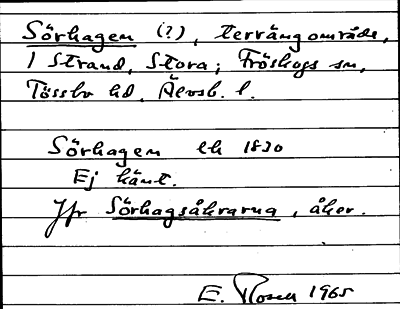 Sörhagen (?), terrängområde,
1 Strand, Stora; Fröskogs sn,
Tössbo hd, Älvsb. l.
Sörhagen lh 1830
Ej känt.
Jfr Sörhagsåkrarna, åker.
E. Rosen 1965